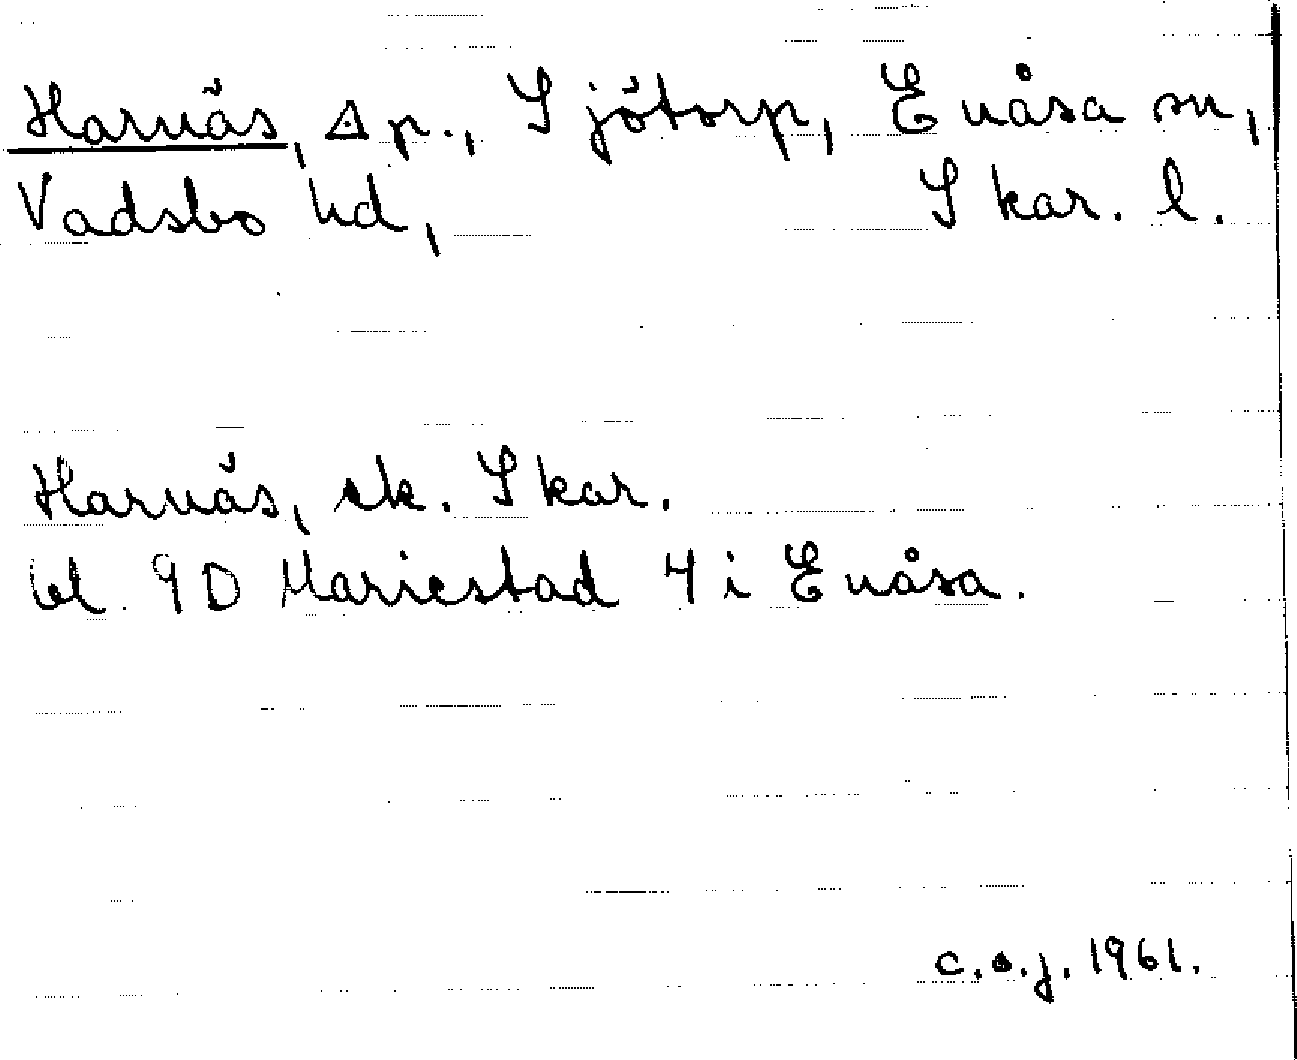 Harnäs, ⊿ p., Sjötorp, Enåsa sn,
Vadsbo hd, Skar. l.
Harnäs, ek. Skar.
bl. 9D Mariestad 4 i Enåsa.
c.o.j. 1961.